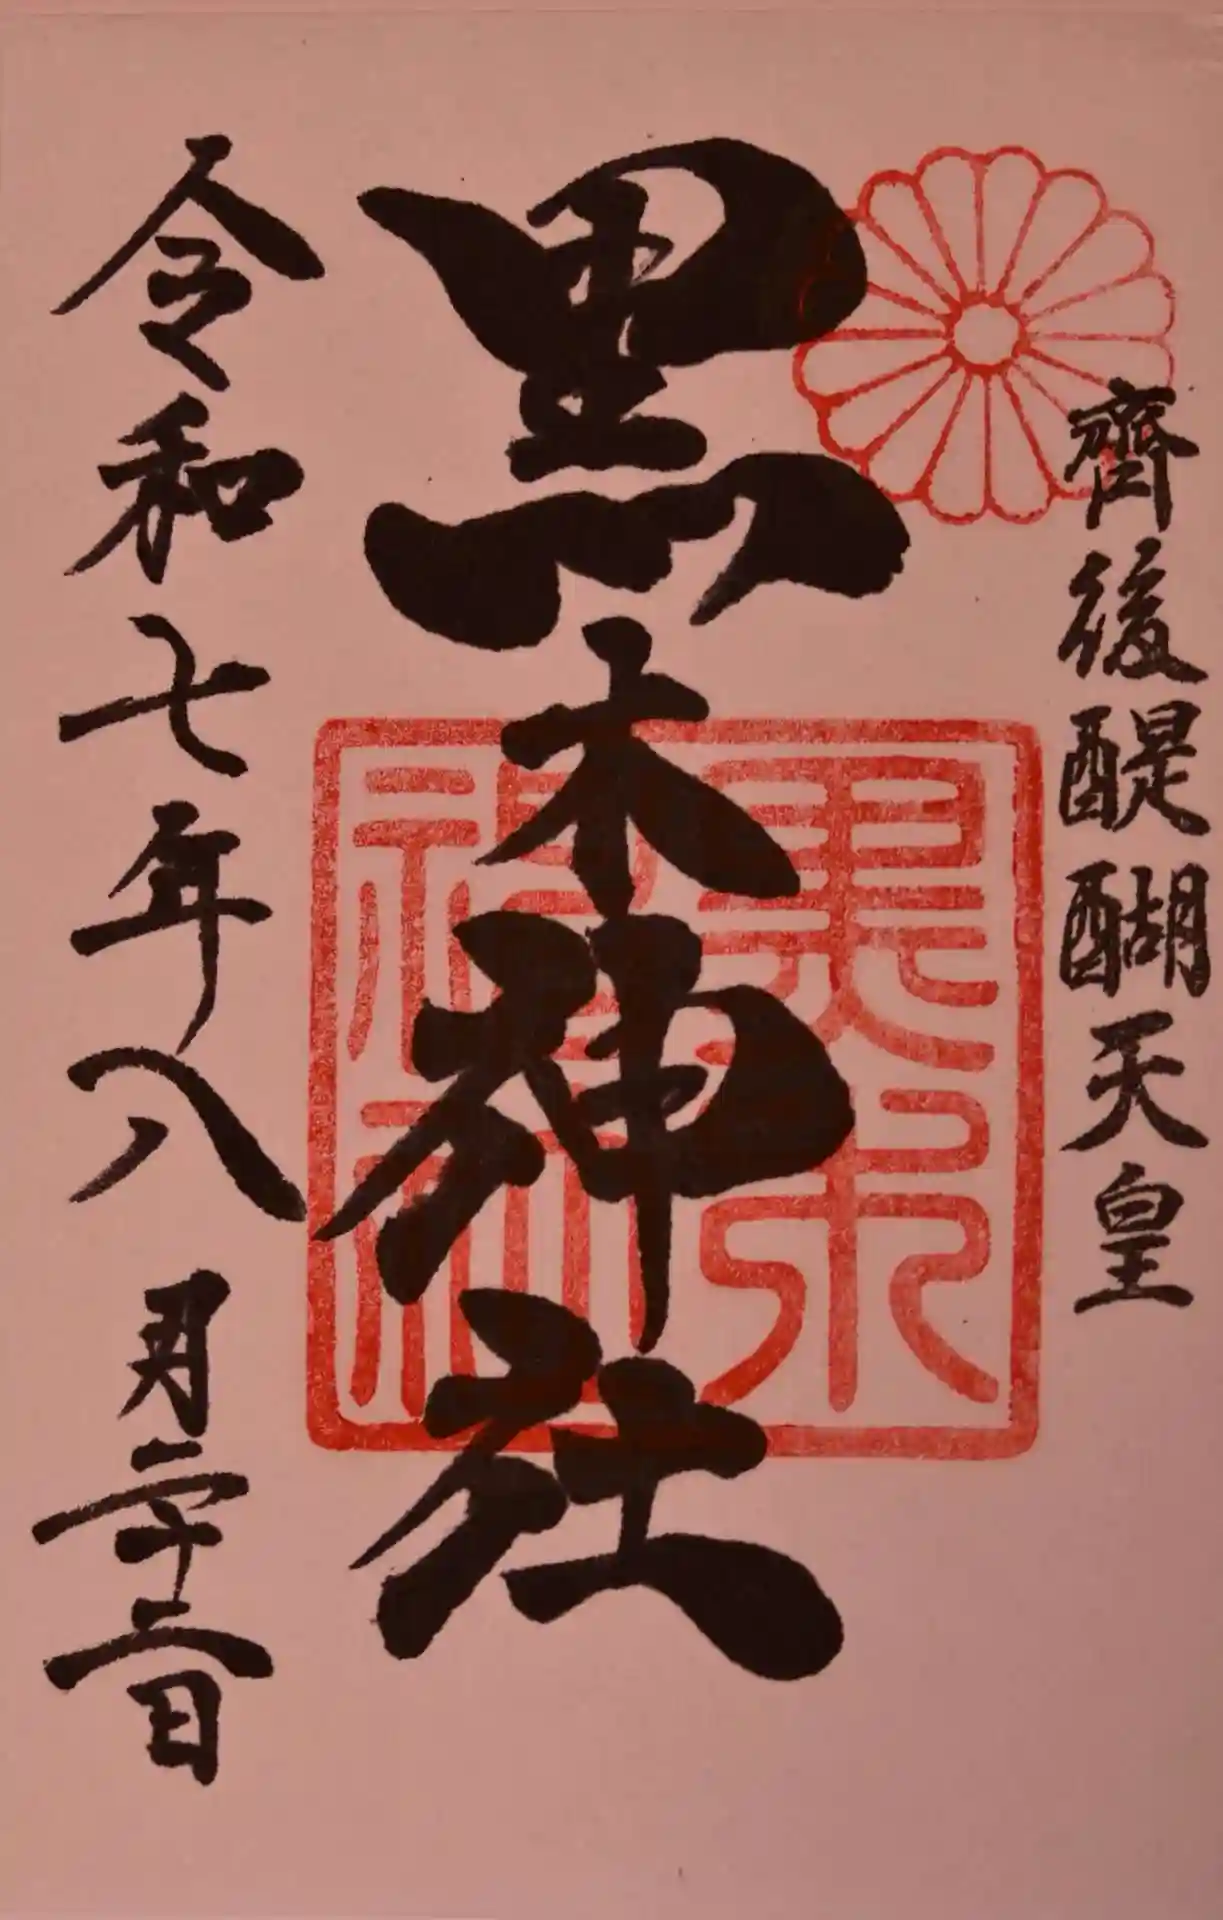 齊後醍醐天皇
黒木神社
黒木
神社
令和七年八月二十二日